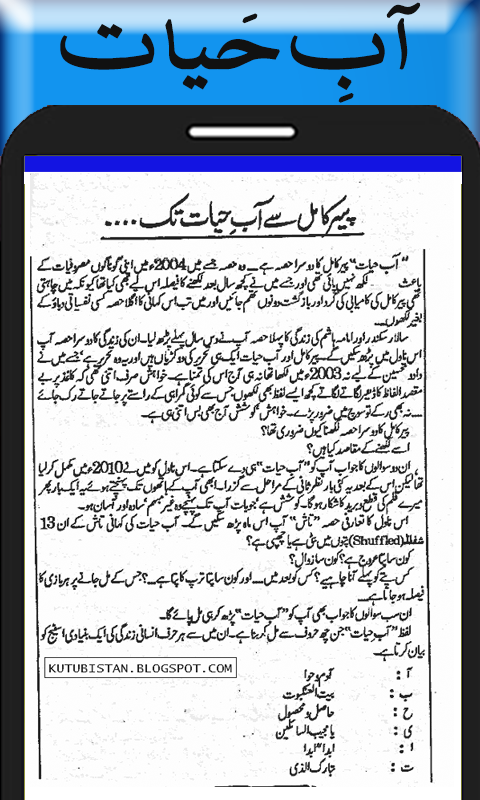 آبِ حَیات
پیر کامل سے آبِ حیات تک....
"آب حیات" پیر کامل کا دوسرا حصہ ہے۔ وہ حصہ جسے میں 2004ء میں اپنی گوناگوں مصروفیات کے
باعث لکھ نہیں پائی تھی اور جسے میں نے کچھ سال بعد لکھنے کا فیصلہ اس لیے بھی کیا تھا کیونکہ میں چاہتی
تھی پیر کامل کی کامیابی کی گرد اور بازگشت دونوں تھم جائیں اور میں تب اس کہانی کا اگلا حصہ کسی نفسیاتی دباؤ کے
بغیر لکھوں....
سالار سکندر اور امامہ ہاشم کی زندگی کا پہلا حصہ آپ نے دس سال پہلے پڑھ لیا۔ ان کی زندگی کا دوسرا حصہ آپ
اس ناول میں پڑھ سکیں گے۔ پیر کامل اور آب حیات ایک ہی تحریر کی دو کڑیاں ہیں اور یہ وہ تحریر ہے جسے میں نے
داد و تحسین کے لیے نہ 2003ء میں لکھا تھا نہ ہی آج اس کی تمنا ہے۔ خواہش صرف اتنی تھی کہ کاغذ پر بے
مقصد الفاظ کا ڈھیر لگاتے لگاتے کچھ ایسے لفظ بھی لکھوں جس سے کوئی گمراہی کے راستے پر جاتے جاتے رک جائے
.... نہ بھی رکے تو سوچ میں ضرور پڑے۔ خواہش، کوشش آج بھی بس اتنی ہی ہے۔
پیر کامل کا دوسرا حصہ لکھنا کیوں ضروری تھا؟
اسے لکھنے کے مقاصد کیا ہیں؟
ان دو سوالوں کا جواب آپ کو "آب حیات" ہی دے سکتا ہے۔ اس ناول کو میں نے 2010ء میں مکمل کر لیا
تھا لیکن اس کے بعد یہ کئی بار نظر ثانی کے مراحل سے گزرا۔ ابھی آپ کے ہاتھوں تک پہنچتے ہوئے یہ ایک بار پھر
میرے قلم کی قطع و برید کا شکار ہوگا۔ کوشش ہے جو بات آپ تک پہنچے وہ غیر مبہم، سادہ اور آسان ہو۔
اس ناول کا تعارفی حصہ "تاش" آپ اس ماہ پڑھ سکیں گے۔ آب حیات کی کہانی تاش کے ان 13
(Shuffled) پتوں میں بٹی ہے یا چھپی ہے؟
کون سا پتا عروج ہے؟ کون سا زوال؟
کس پتے کو پہلے آنا چاہیے؟ کس کو بعد میں.... اور کون سا پتا ترپ کا پتا ہے....؟ جس کے مل جانے پر ہر بازی کا
فیصلہ ہو جاتا ہے....
ان سب سوالوں کا جواب بھی آپ کو "آب حیات" پڑھ کر ہی مل پائے گا۔
لفظ "آب حیات" جن چھ حروف سے مل کر بنا ہے۔ ان میں سے ہر حرف انسانی زندگی کی ایک بنیادی اسٹیج کو
بیان کرتا ہے۔
KUTUBISTAN.BLOGSPOT.COM
آ : آدم و حوا
ب : بیت العنکبوت
ح : حاصل و محصول
ی : یا مجیب السائلین
ا : ابدا ابدا
ت : تبارک الذی